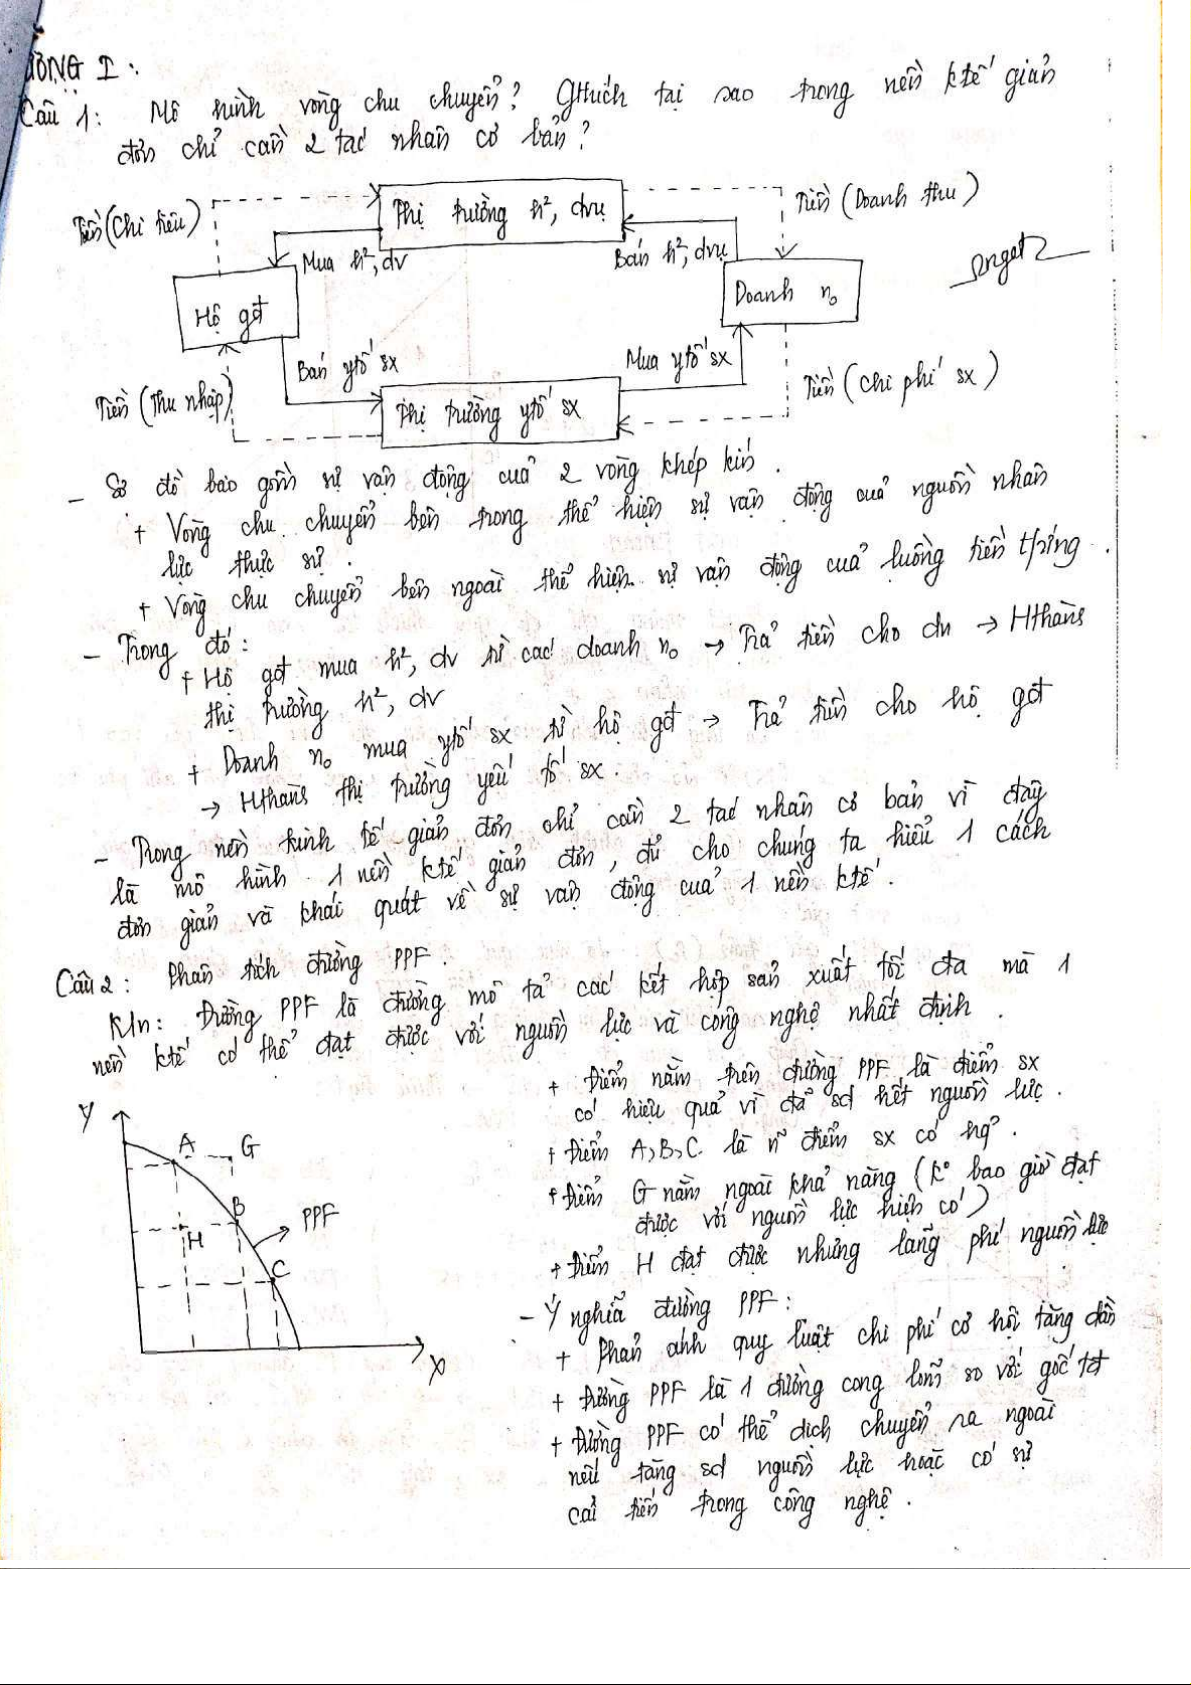 ƯƠNG I:
Câu 1: Mô hình vòng chu chuyển? Gthích tại sao trong nền ktế giản
đơn chỉ cần 2 tác nhân cơ bản?
Tiền (Chi tiêu)
Thị trường h², dvụ
Tiền (Doanh thu)
Mua h², dv
Bán h², dvụ
Hộ gđ
Doanh n₀
Bán ytố sx
Mua ytố sx
Tiền (Thu nhập)
Thị trường ytố sx
Tiền (chi phí sx)
- Sơ đồ bao gồm sự vận động của 2 vòng khép kín.
+ Vòng chu chuyển bên trong thể hiện sự vận động của nguồn nhân
lực thực sự.
+ Vòng chu chuyển bên ngoài thể hiện sự vận động của luồng tiền tứng.
- Trong đó:
+ Hộ gđ mua h², dv từ các doanh n₀ → Trả tiền cho dn → Hthành
thị trường h², dv
+ Doanh n₀ mua ytố sx từ hộ gđ → Trả tiền cho hộ gđ
→ Hthành thị trường yếu tố sx.
- Trong nền kinh tế giản đơn chỉ cần 2 tác nhân cơ bản vì đây
là mô hình 1 nền ktế giản đơn, đủ cho chúng ta hiểu 1 cách
đơn giản và khái quát về sự vận động của 1 nền ktế.
Câu 2: Phân tích đường PPF.
K/n: Đường PPF là đường mô tả các kết hợp sản xuất tối đa mà 1
nền ktế có thể đạt được với nguồn lực và công nghệ nhất định.
Y
A
G
B
H
PPF
C
X
+ Điểm nằm trên đường PPF là điểm sx
có hiệu quả vì đã sd hết nguồn lực.
+ Điểm A, B, C là n~ điểm sx có hq°.
+ Điểm G nằm ngoài khả năng (k° bao giờ đạt
được với nguồn lực hiện có)
+ Điểm H đạt được nhưng lãng phí nguồn lực
- Ý nghĩa đường PPF:
+ Phản ánh quy luật chi phí cơ hội tăng dần
+ Đường PPF là 1 đường cong lõm so với gốc tđ
+ Đường PPF có thể dịch chuyển ra ngoài
nếu tăng sd nguồn lực hoặc có sự
cải tiến trong công nghệ.